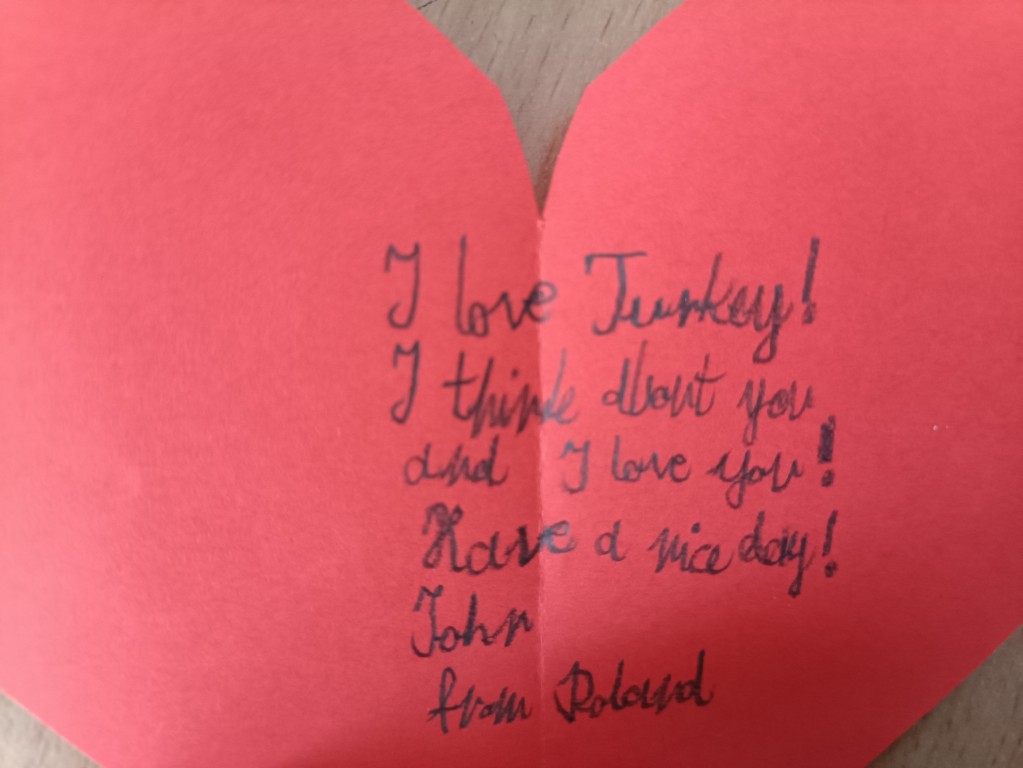 I love Turkey!
I think about you
and I love you!
Have a nice day!
John
from Poland